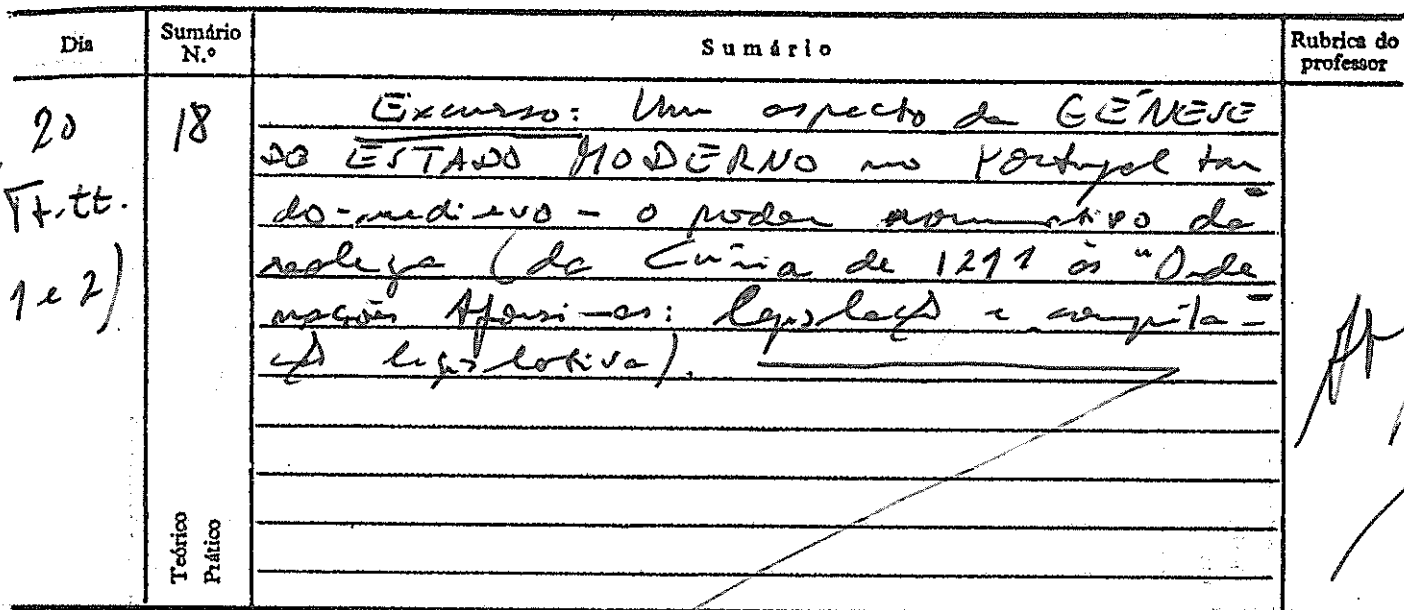 Dia
Sumário N.º
Sumário
Rubrica do professor
20
18
Excurso: Um aspecto da GÉNESE
DO ESTADO MODERNO no Portugal tar
do-medievo - o poder normativo da
realeza (da Cúria de 1211 às "Orde
nações Afonsinas: legislação e compila-
ção legislativa).
tt.
1 e 2)
Teórico
Prático